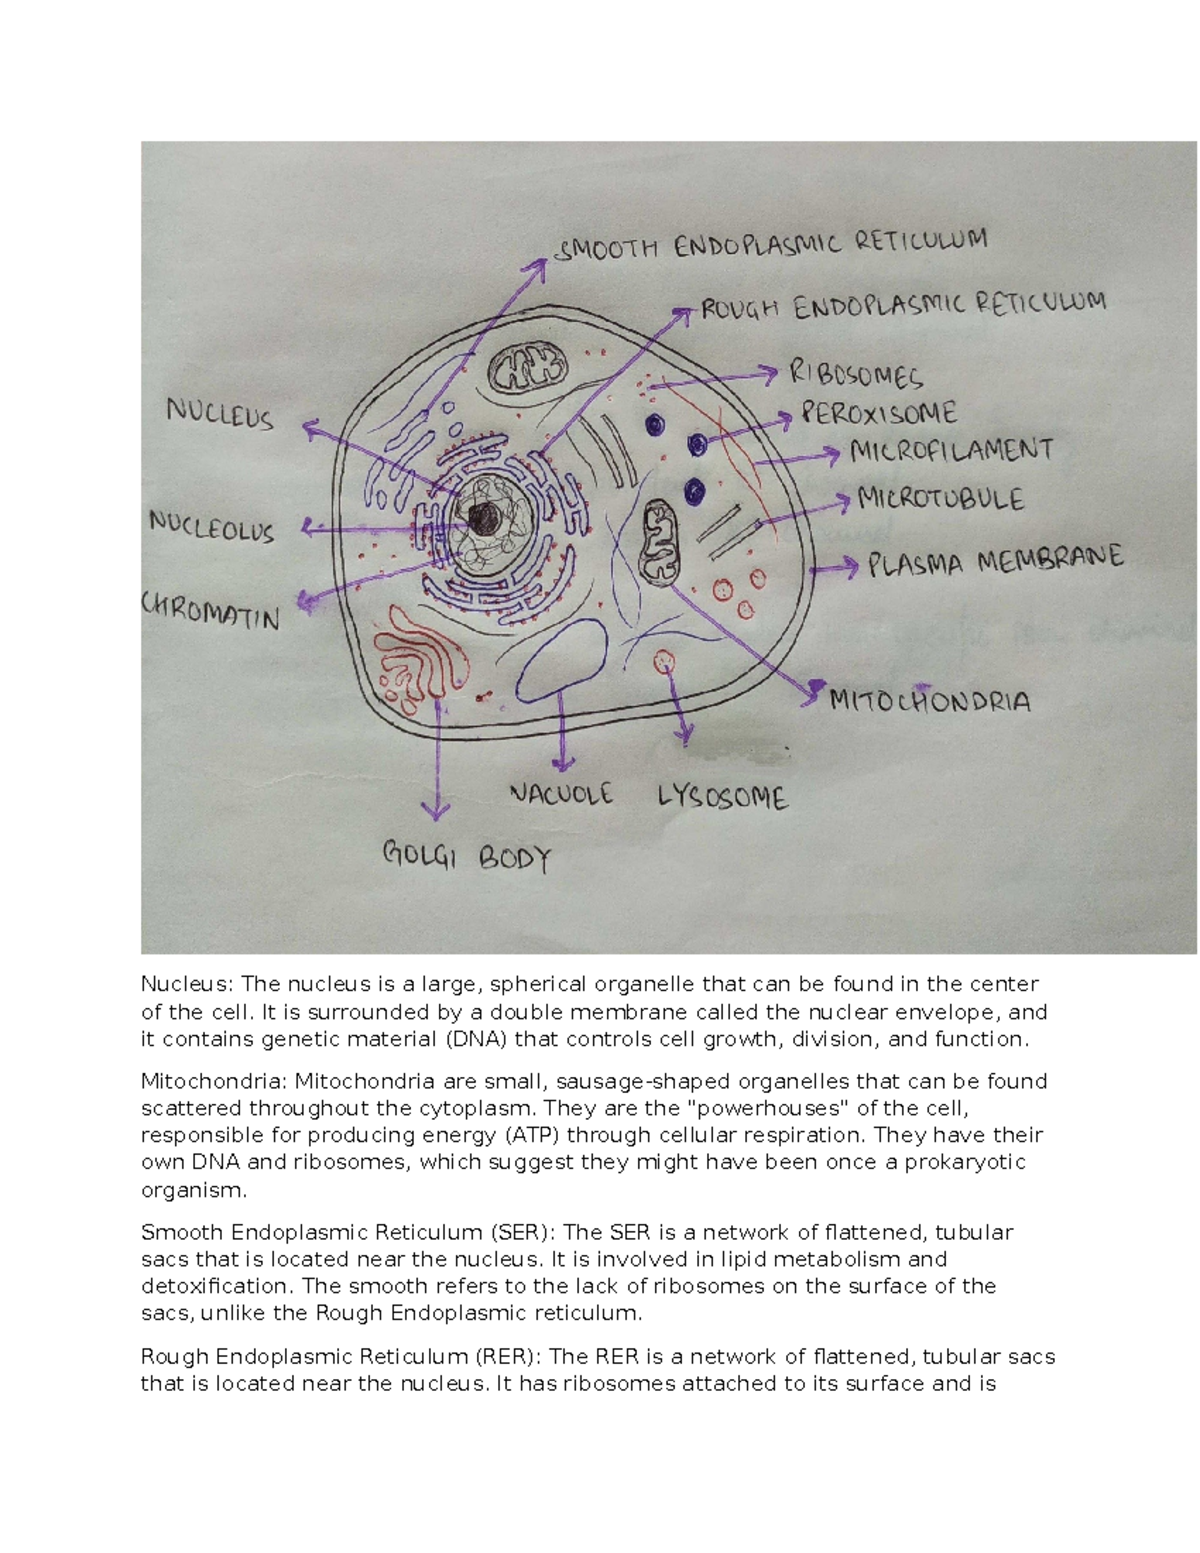 SMOOTH ENDOPLASMIC RETICULUM
ROUGH ENDOPLASMIC RETICULUM
RIBOSOMES
NUCLEUS
PEROXISOME
MICROFILAMENT
MICROTUBULE
NUCLEOLUS
PLASMA MEMBRANE
CHROMATIN
MITOCHONDRIA
VACUOLE
LYSOSOME
GOLGI BODY
Nucleus: The nucleus is a large, spherical organelle that can be found in the center
of the cell. It is surrounded by a double membrane called the nuclear envelope, and
it contains genetic material (DNA) that controls cell growth, division, and function.
Mitochondria: Mitochondria are small, sausage-shaped organelles that can be found
scattered throughout the cytoplasm. They are the "powerhouses" of the cell,
responsible for producing energy (ATP) through cellular respiration. They have their
own DNA and ribosomes, which suggest they might have been once a prokaryotic
organism.
Smooth Endoplasmic Reticulum (SER): The SER is a network of flattened, tubular
sacs that is located near the nucleus. It is involved in lipid metabolism and
detoxification. The smooth refers to the lack of ribosomes on the surface of the
sacs, unlike the Rough Endoplasmic reticulum.
Rough Endoplasmic Reticulum (RER): The RER is a network of flattened, tubular sacs
that is located near the nucleus. It has ribosomes attached to its surface and is